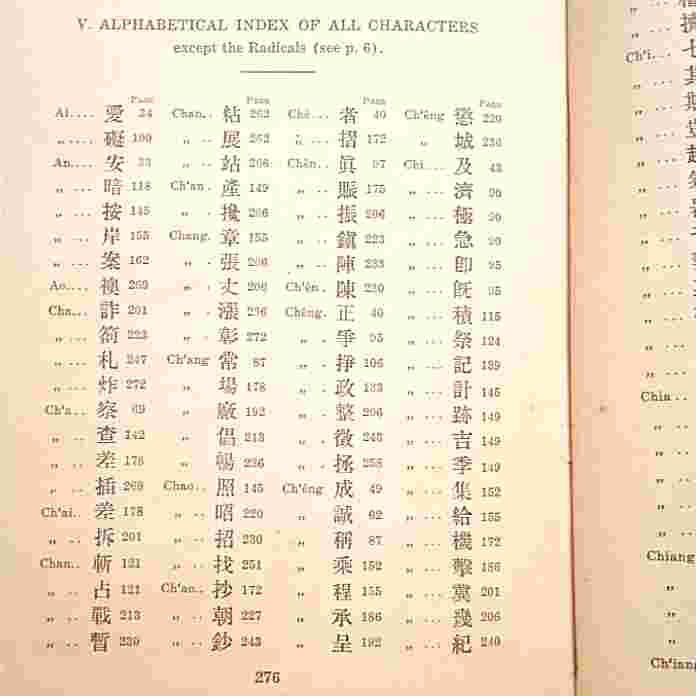 V. ALPHABETICAL INDEX OF ALL CHARACTERS
except the Radicals (see p. 6).
PAGE PAGE PAGE PAGE
Ai.... 愛 24 Chan.. 粘 262 Chê... 者 40 Ch'êng 懲 220
„ .... 礙 190 „ .. 展 262 „ ... 摺 172 „ 城 236
An.... 安 33 „ .. 站 266 Chên.. 眞 97 Chi.... 及 43
„ ... 暗 118 Ch'an. 產 149 „ .. 賑 175 „ ... 濟 90
„ ... 按 145 „ . 攙 206 „ .. 振 206 „ ... 極 90
„ ... 岸 155 Chang. 章 155 „ .. 鎭 223 „ ... 急 90
„ ... 案 162 „ . 張 206 „ .. 陣 233 „ ... 卽 95
Ao.... 襖 269 „ . 丈 206 Ch'ên. 陳 230 „ ... 旣 95
Cha... 詐 201 „ . 漲 236 Chêng. 正 40 „ ... 積 115
„ ... 箚 223 „ . 彰 272 „ . 爭 95 „ ... 祭 124
„ ... 札 247 Ch'ang 常 87 „ . 掙 106 „ ... 記 139
„ ... 炸 272 „ 場 178 „ . 政 133 „ ... 計 145
Ch'a.. 察 69 „ 廠 192 „ . 整 206 „ ... 跡 149
„ .. 查 142 „ 倡 213 „ . 徵 243 „ ... 吉 149
„ .. 差 178 „ 暢 236 „ . 拯 258 „ ... 季 149
„ .. 插 269 Chao.. 照 145 Ch'êng 成 49 „ ... 集 152
Ch'ai. 差 178 „ .. 昭 220 „ 誠 62 „ ... 給 155
„ . 拆 201 „ .. 招 230 „ 稱 87 „ ... 機 172
Chan.. 斬 121 „ .. 找 251 „ 乘 152 „ ... 擊 186
„ .. 占 121 Ch'ao. 抄 172 „ 程 155 „ ... 冀 201
„ .. 戰 213 „ . 朝 227 „ 承 186 „ ... 幾 206
„ .. 暫 230 „ . 鈔 243 „ 呈 192 „ ... 紀 240
276
Ch'i...
七
Chia..
Chiang